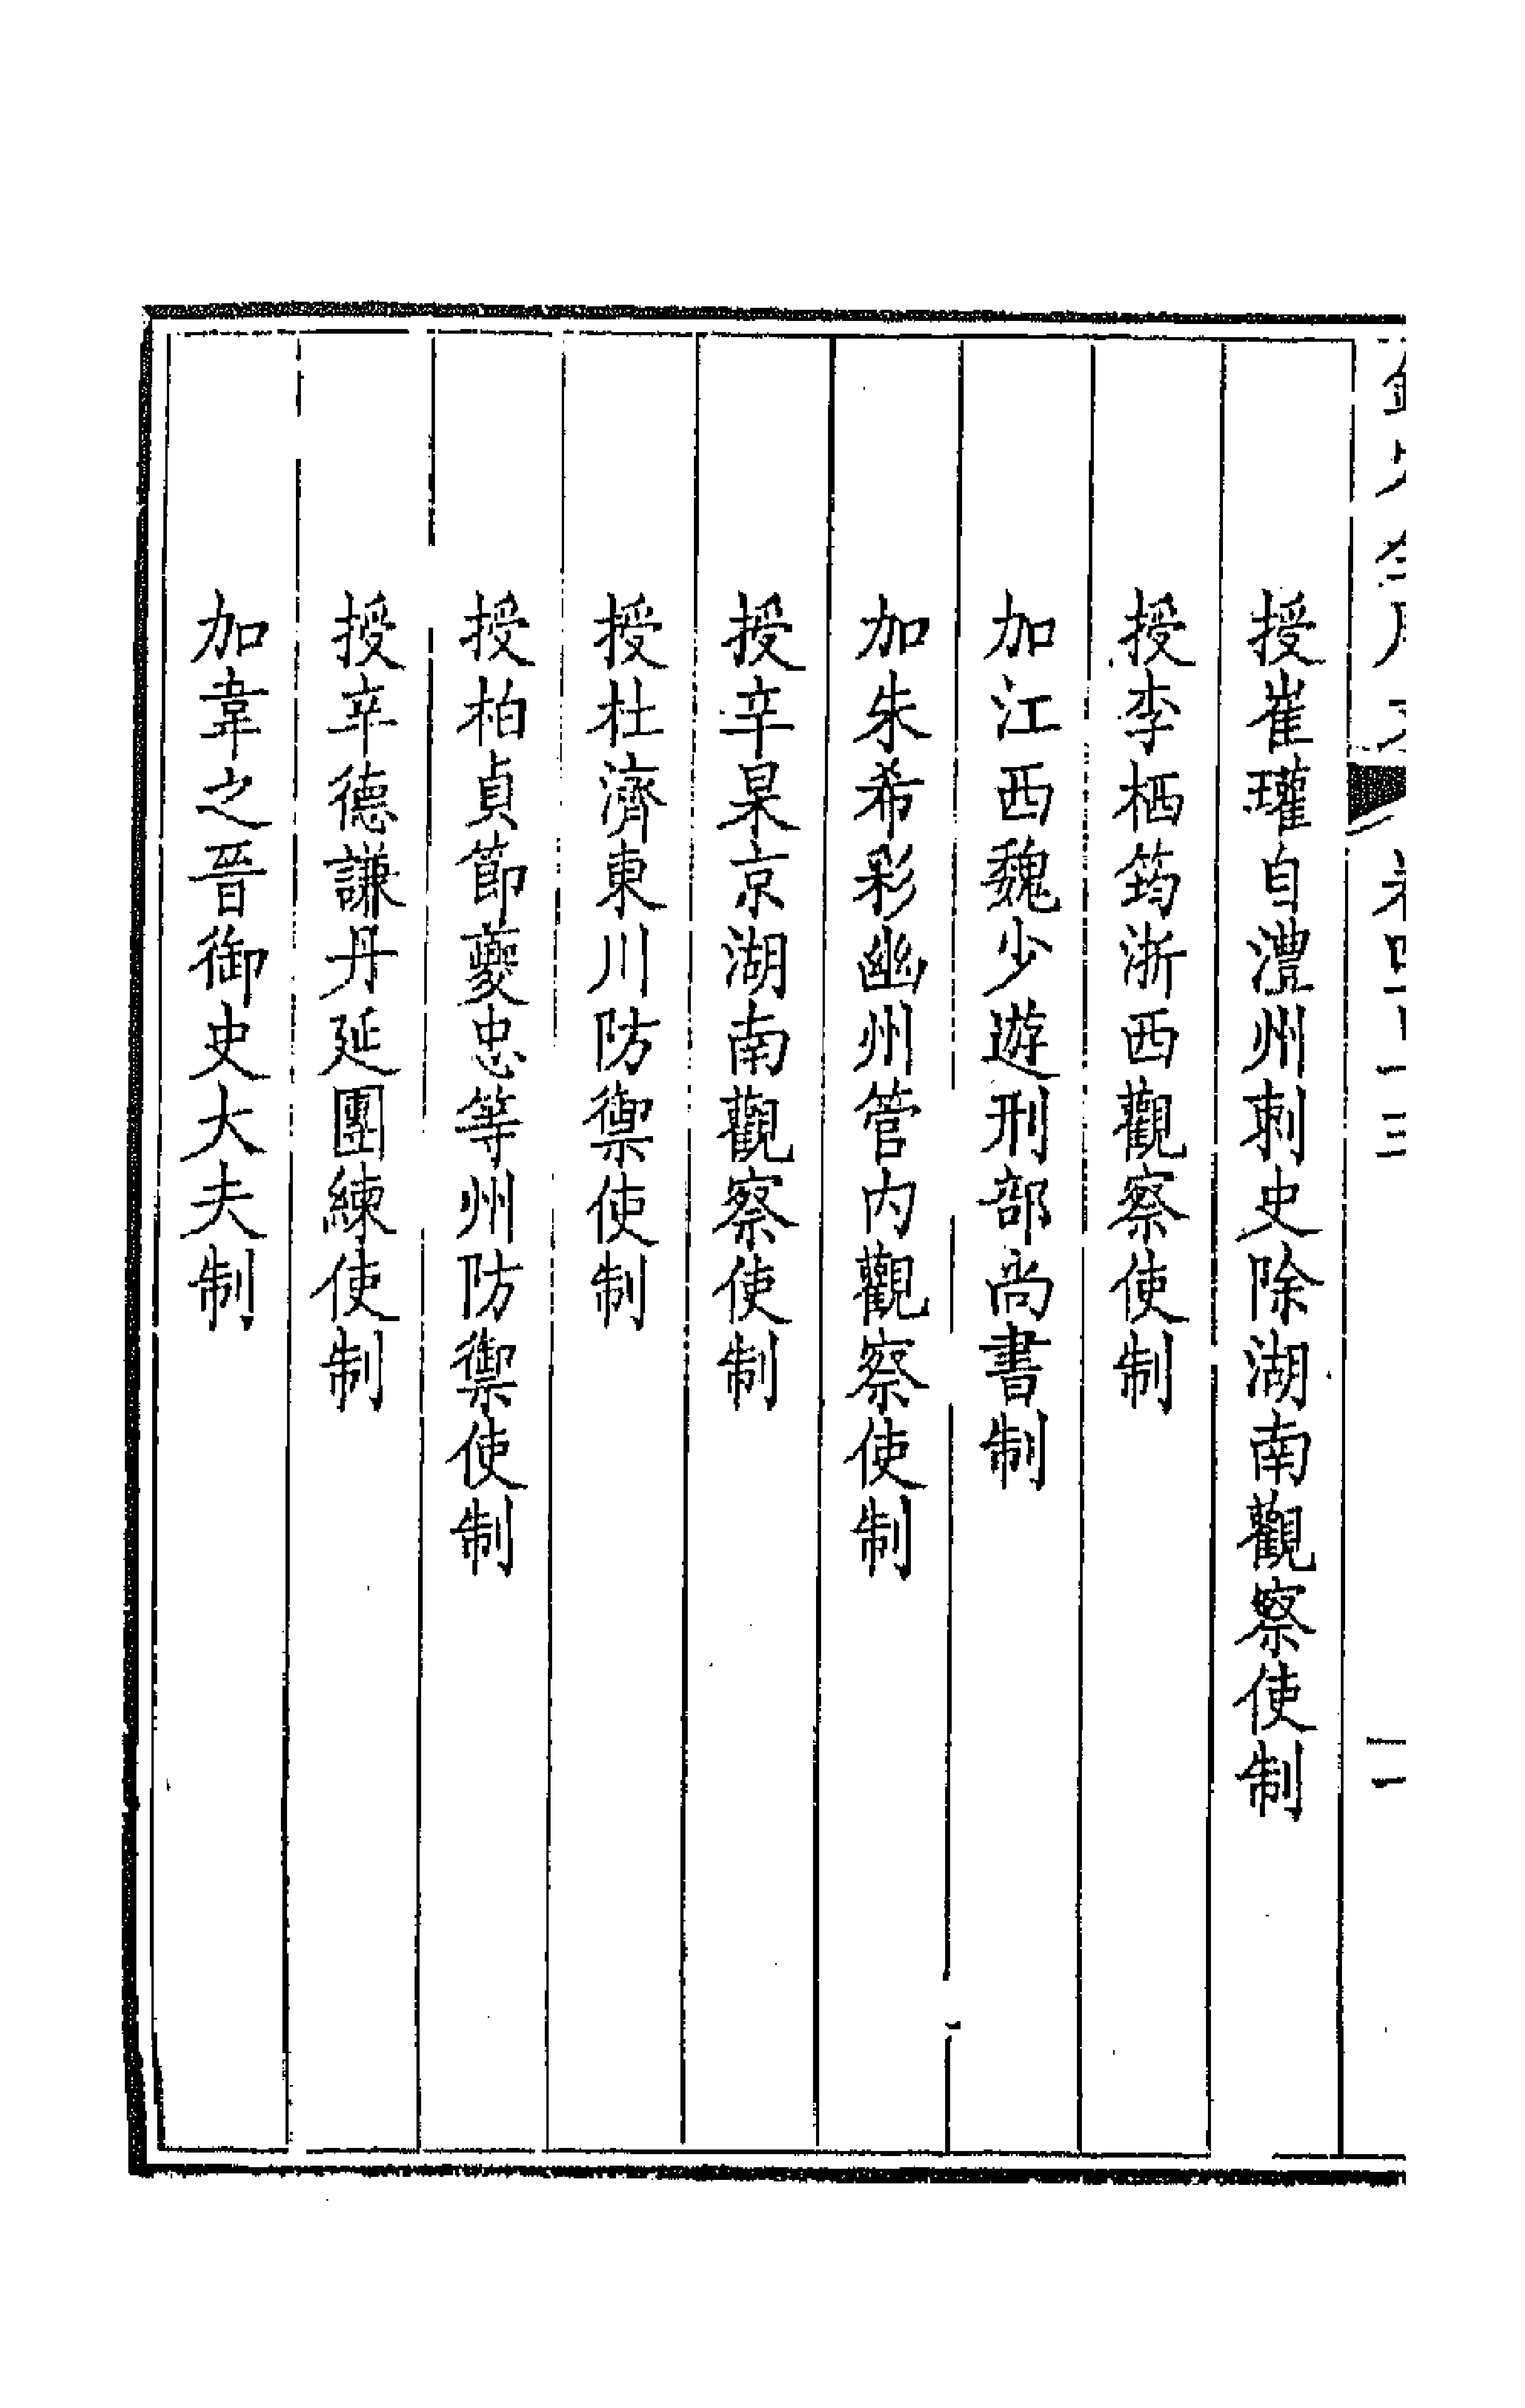 授崔瓘自澧州刺史除湖南觀察使制
授李栖筠浙西觀察使制
加江西魏少遊刑部尚書制
加朱希彩幽州管内觀察使制
授辛杲京湖南觀察使制
授杜濟東川防禦使制
授柏貞節夔忠等州防禦使制
授辛德謙丹延團練使制
加韋之晉御史大夫制